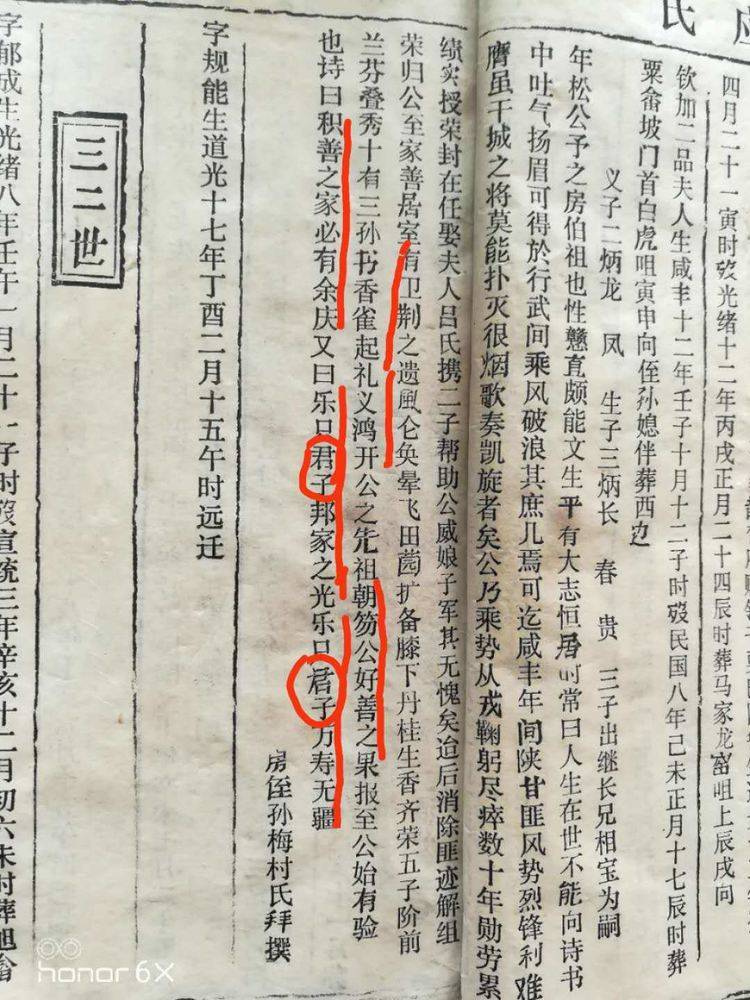 应氏
四月二十一寅时殁光绪十二年丙戌正月二十四辰时葬马家龙窑咀上辰戌向
钦加二品夫人生咸丰十二年壬子十月十二子时殁民国八年己未正月十七辰时葬
粟畲坡门首白虎咀寅申向侄孙媳伴葬西边
义子二炳龙 凤 生子三炳长 春 贵 三子出继长兄相宝为嗣
年松公予之房伯祖也性戆直颇能文生平有大志恒居时常曰人生在世不能向诗书
中吐气扬眉可得於行武间乘风破浪其庶几焉可迄咸丰年间陕甘匪风势烈锋利难
膺虽干城之将莫能扑灭很烟歌奏凯旋者矣公乃乘势从戎鞠躬尽瘁数十年勋劳累
绩实授荣封在任娶夫人吕氏携二子帮助公威娘子军其无愧矣迨后消除匪迹解组
荣归公至家善居室有卫荆之遗風仑奂晕飞田園扩备膝下丹桂生香齐荣五子阶前
兰芬叠秀十有三孙书香雀起礼义鸿开公之先祖朝笏公好善之果报至公始有验
也诗曰积善之家必有余庆又曰乐只君子邦家之光乐只君子万寿无疆
房侄孙梅村氏拜撰
字规能生道光十七年丁酉二月十五午时远迁
三二世
字郁成生光绪八年壬午一月二十一子时殁宣统三年辛亥十二月初六未时葬旭畲
honor 6X